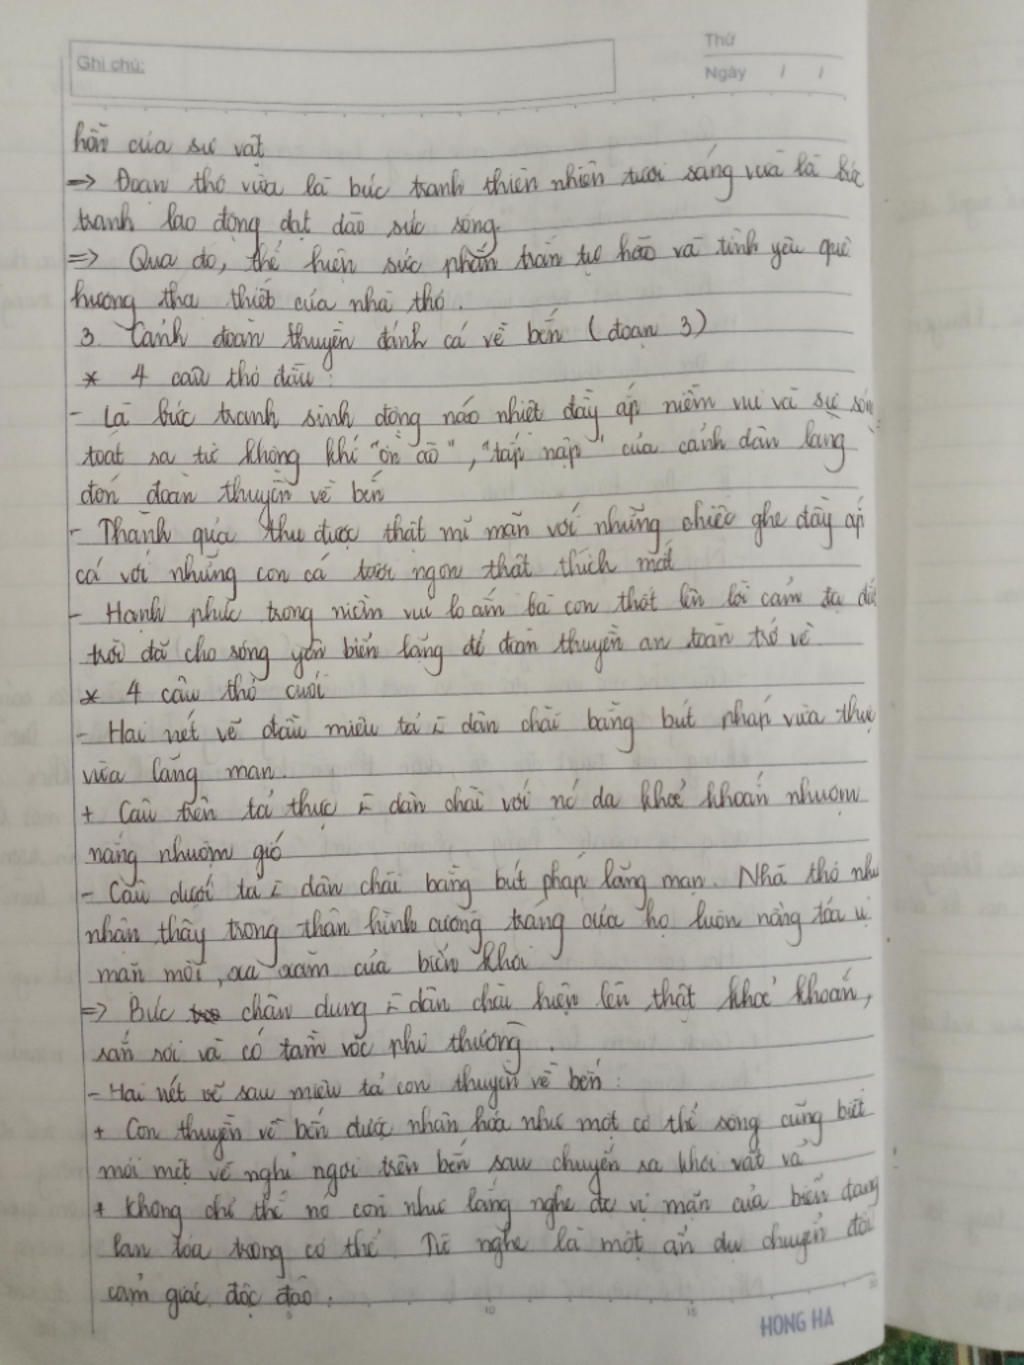 Thứ
Ghi chú:
Ngày / /
hồn của sự vật
=> Đoạn thơ vừa là bức tranh thiên nhiên tươi sáng vừa là bức
tranh lao động dạt dào sức sống.
=> Qua đó, thể hiện sức phấn trấn tự hào và tình yêu quê
hương tha thiết của nhà thơ.
3. Cảnh đoàn thuyền đánh cá về bến (đoạn 3)
* 4 câu thơ đầu:
- Là bức tranh sinh động náo nhiệt đầy ắp niềm vui và sự sống
toát ra từ không khí "ồn ào", "tấp nập" của cảnh dân làng
đón đoàn thuyền về bến
- Thành quả thu được thật mĩ mãn với những chiếc ghe đầy ắp
cá với những con cá tươi ngon thật thích mắt
- Hạnh phúc trong niềm vui to ấm bà con thốt lên lời cảm tạ đất
trời đã cho sóng yên biển lặng để đoàn thuyền an toàn trở về
* 4 câu thơ cuối
- Hai nét vẽ đầu miêu tả dân chài bằng bút pháp vừa thực
vừa lãng mạn.
+ Câu trên tả thực dân chài với nó da khoẻ khoắn nhuộm
nắng nhuộm gió
- Câu dưới tả dân chài bằng bút pháp lãng mạn. Nhà thơ như
nhận thấy trong thân hình cường tráng của họ luôn nồng tỏa vị
mặn mòi, xa xăm của biển khơi
=> Bức chân dung dân chài hiện lên thật khoẻ khoắn,
rắn rỏi và có tầm vóc phi thường.
- Hai nét vẽ sau miêu tả con thuyền về bến:
+ Con thuyền về bến được nhân hóa như một cơ thể sống cũng biết
mỏi mệt về nghỉ ngơi trên bến sau chuyến ra khơi vất vả
+ Không chỉ thế nó còn như lắng nghe được vị mặn của biển đang
lan tỏa trong cơ thể. Từ nghe là một ẩn dụ chuyển đổi
cảm giác độc đáo.
5 10 15 20
HONG HA